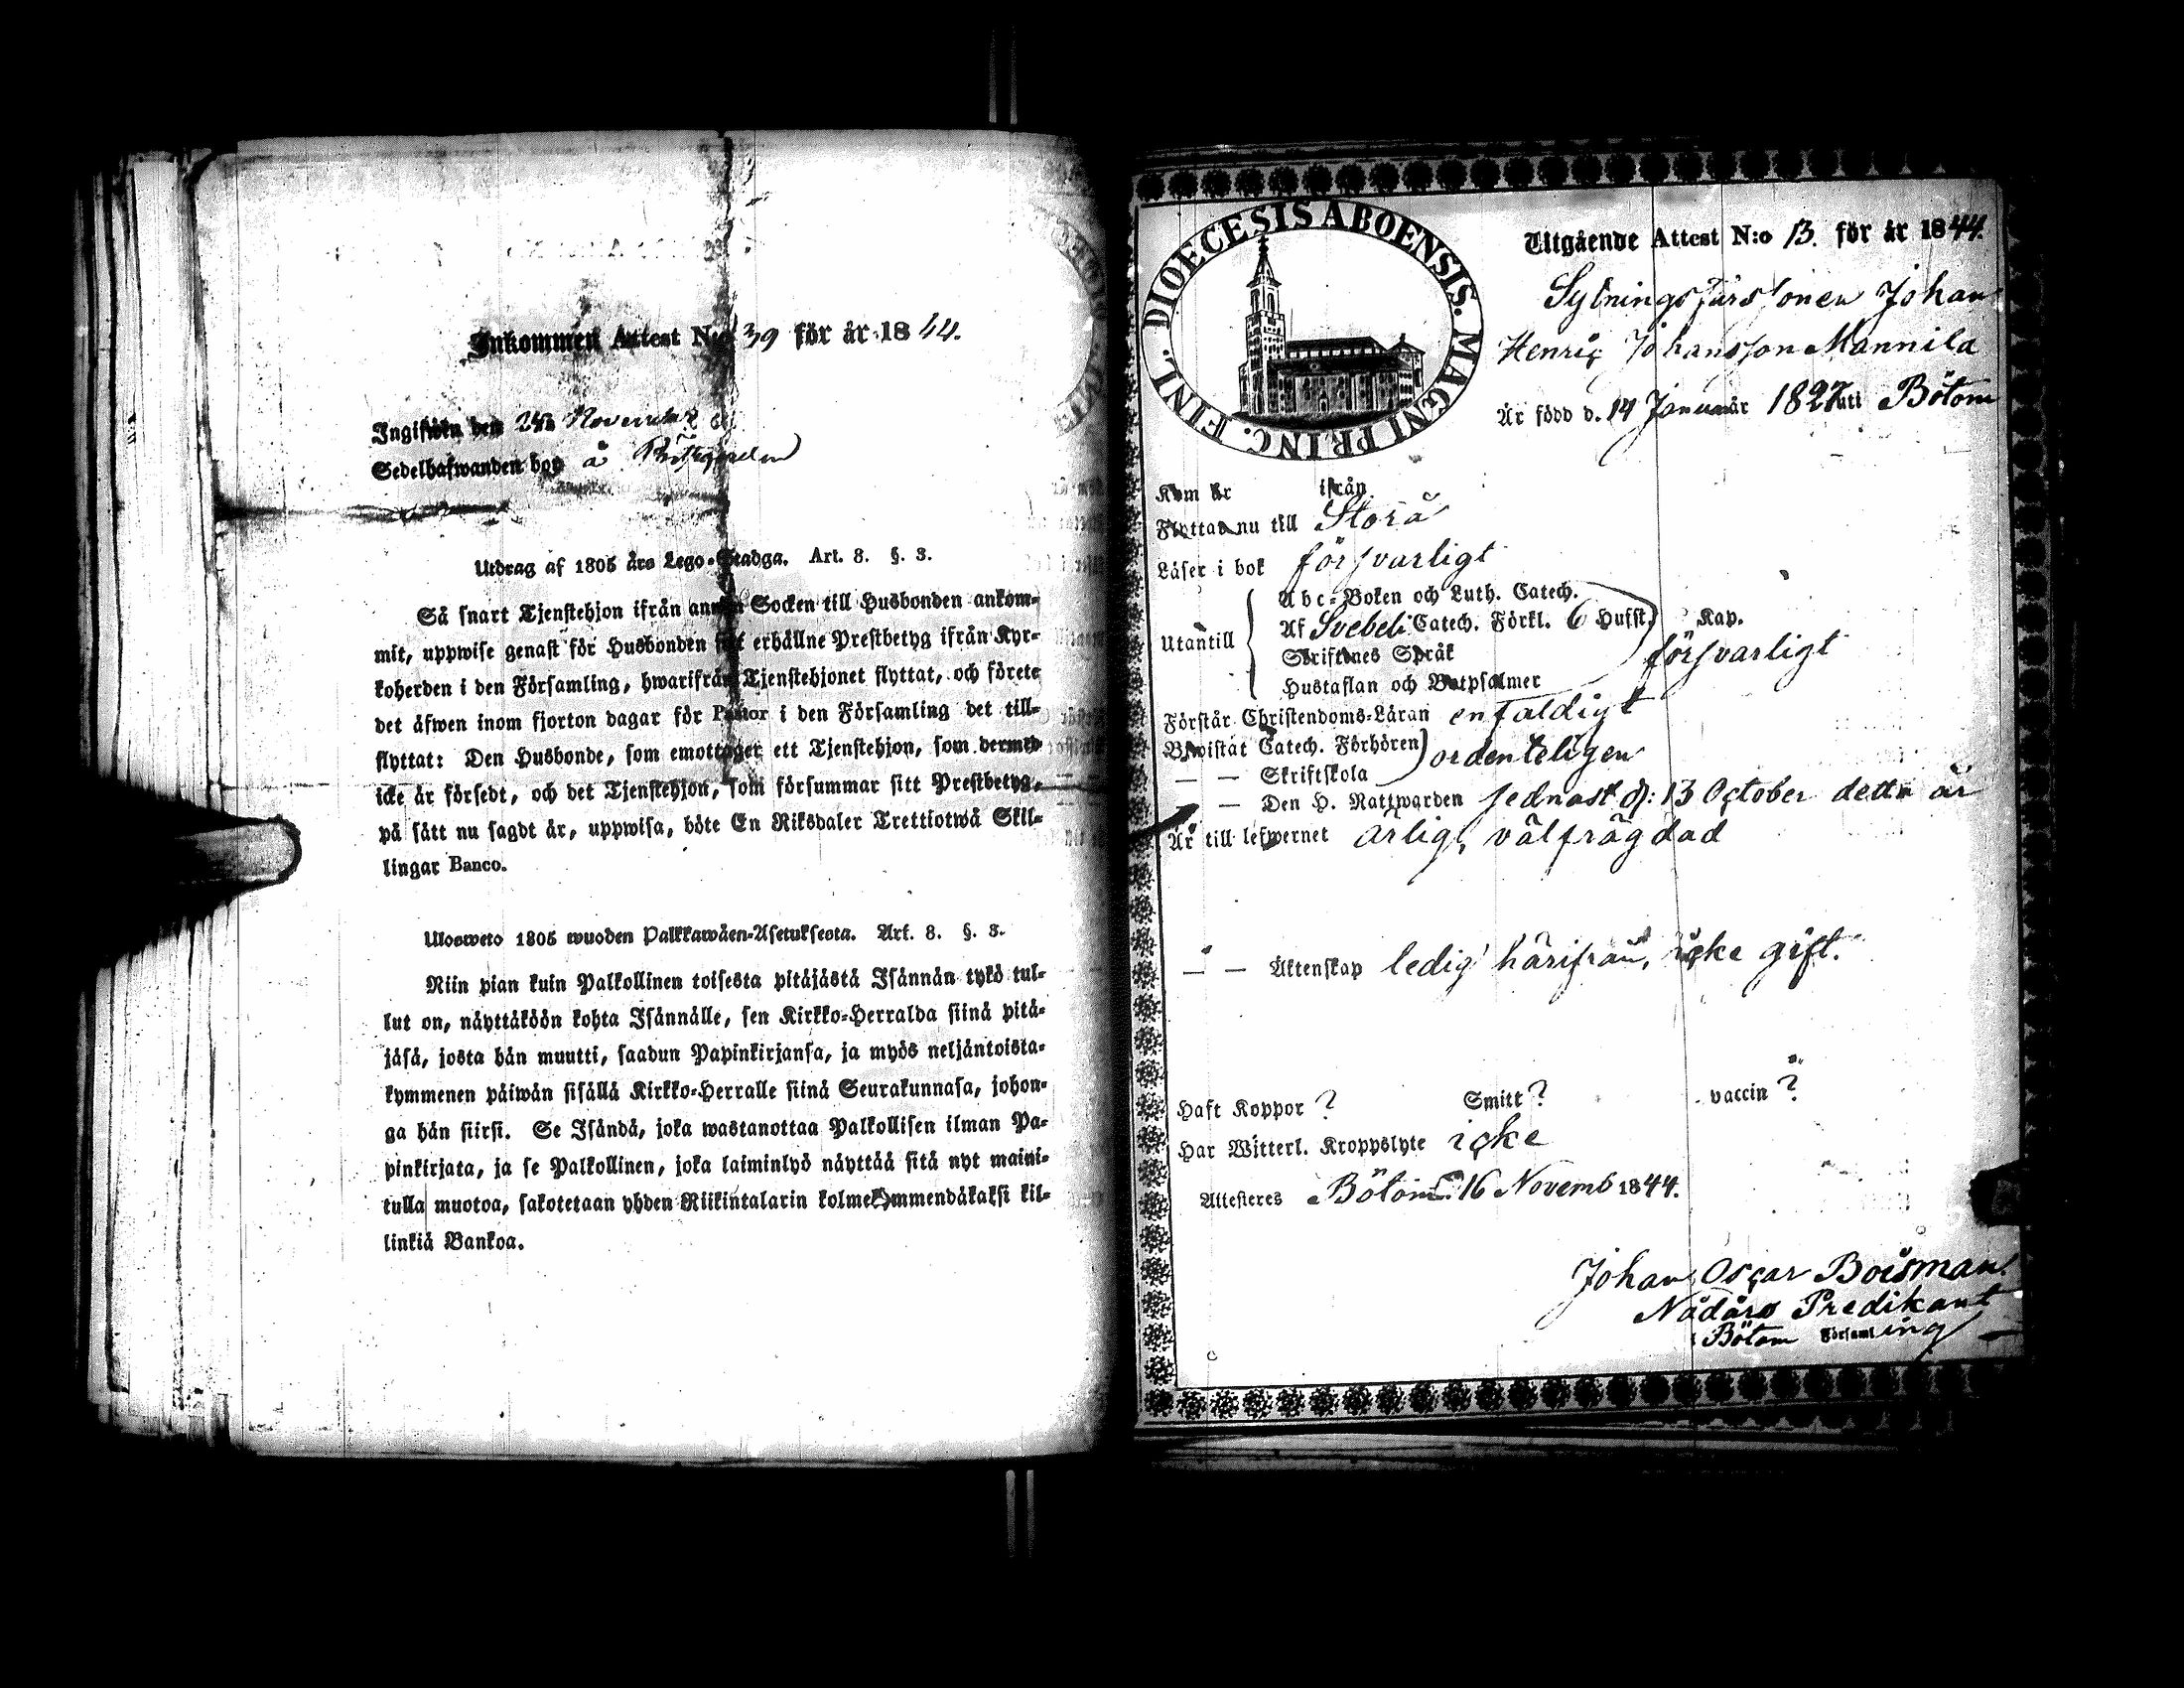 Inkommen Attest N:o 39 för år 1844.
Ingifwen den November
Sedelhafwanden bor å
Utdrag af 1805 års Lego-Stadga. Art. 8. §. 3.
Så snart Tjenstehjon ifrån annan Socken till Husbonden ankom-
mit, uppwise genast för Husbonden sitt erhållne Prestbetyg ifrån Kyr-
koherden i den Församling, hwarifrån Tjenstehjonet flyttat, och förete
det äfwen inom fjorton dagar för Pastor i den Församling det till-
flyttat: Den Husbonde, som emottager ett Tjenstehjon, som dermed
icke är försedt, och det Tjenstehjon, som försummar sitt Prestbetyg,
på sätt nu sagdt är, uppwisa, böte En Riksdaler Trettiotwå Skil-
lingar Banco.
Ulosweto 1805 wuoden Palkkawäen-Asetuksesta. Art. 8. §. 3.
Niin pian kuin Palkollinen toisesta pitäjästä Isännän tykö tul-
lut on, näyttäköön kohta Isännälle, sen Kirkko-Herralda siinä pitä-
jäsä, josta hän muutti, saadun Papinkirjansa, ja myös neljäntoista-
kymmenen päiwän sisällä Kirkko-Herralle siinä Seurakunnasa, johon-
ga hän siirsi. Se Isändä, joka wastanottaa Palkollisen ilman Pa-
pinkirjata, ja se Palkollinen, joka laiminlyö näyttää sitä nyt maini-
tulla muotoa, sakotetaan yhden Riikintalarin kolmekymmendäkaksi kil-
linkiä Bankoa.
DIOECESIS ABOENSIS. MAGNI PRINC. FINL.
Utgående Attest N:o 13. för år 1844.
Sytningskarssonen Johan
Henric Johansson Mannila
Är född d. 14 Januar 1827 uti Bötom
Kom år ifrån
Flyttar nu till Storå
Läser i bok försvarligt
Utantill
Abc-Boken och Luth. Catech.
Af Svebeli Catech. Förkl. 6 Hufst. Kap.
Skriftenes Språk försvarligt
Hustaflan och Botpsalmer
Förstår Christendoms-Läran enfaldigt
Bewistat Catech. Förhören ordenteligen
— — Skriftskola
— Den H. Nattwarden sednast d: 13 October detta år
Är till lefwernet ärlig, välfrägdad
— — Äktenskap ledig härifrån, icke gift.
Haft Koppor ? Smitt ? vaccin ?
Har Witterl. Kroppslyte icke
Attesteres Bötom d. 16 Novemb 1844.
Johan Oscar Boisman.
Nådårs Predikant
i Bötom Församling